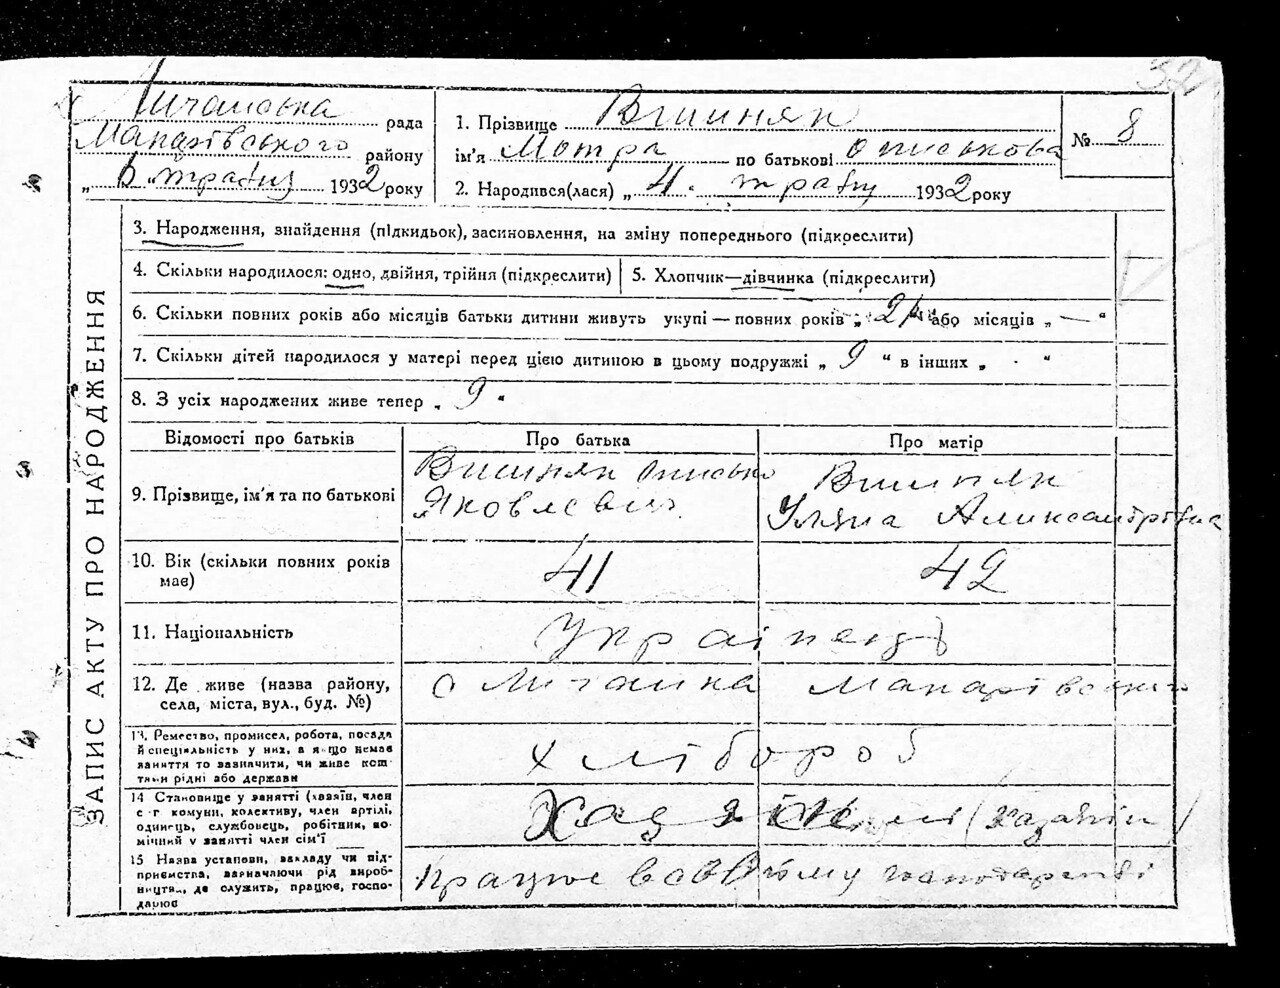 Личанська рада
Макарівського району
„ 6 " травня 1932 року
1. Прізвище Вишняк
ім'я Мотра по батькові Описькова
2. Народився(лася) „ 4 " травня 1932 року
№ 8
ЗАПИС АКТУ ПРО НАРОДЖЕННЯ
3. Народження, знайдення (підкидьок), засиновлення, на зміну попереднього (підкреслити)
4. Скільки народилося: одно, двійня, трійня (підкреслити)
5. Хлопчик—дівчинка (підкреслити)
6. Скільки повних років або місяців батьки дитини живуть укупі — повних років „ 21 " або місяців „ — "
7. Скільки дітей народилося у матері перед цією дитиною в цьому подружжі „ 9 " в інших „ - "
8. З усіх народжених живе тепер „ 9 "
Відомості про батьків
Про батька
Про матір
9. Прізвище, ім'я та по батькові
Вишняк Описько
Яковлевич
Вишняк
Уляна Александрівна
10. Вік (скільки повних років
має)
41
42
11. Національність
Українець
12. Де живе (назва району,
села, міста, вул., буд. №)
с Личанка Макарівського
13. Ремество, промисел, робота, посада
й спеціяльність у них, а якщо немає
заняття то зазначити, чи живе кош-
тами рідні або держави
хлібороб
14 Становище у занятті (хазяїн, член
с-г комуни, колективу, член артілі,
одинець, службовець, робітник, по-
мічний у занятті член сім'ї
(Хазяїн)
15 Назва установи, закладу чи під-
приємства, зазначаючи рід вироб-
ництва, де служить, працює, госпо-
дарює
Працює в своїому господарстві